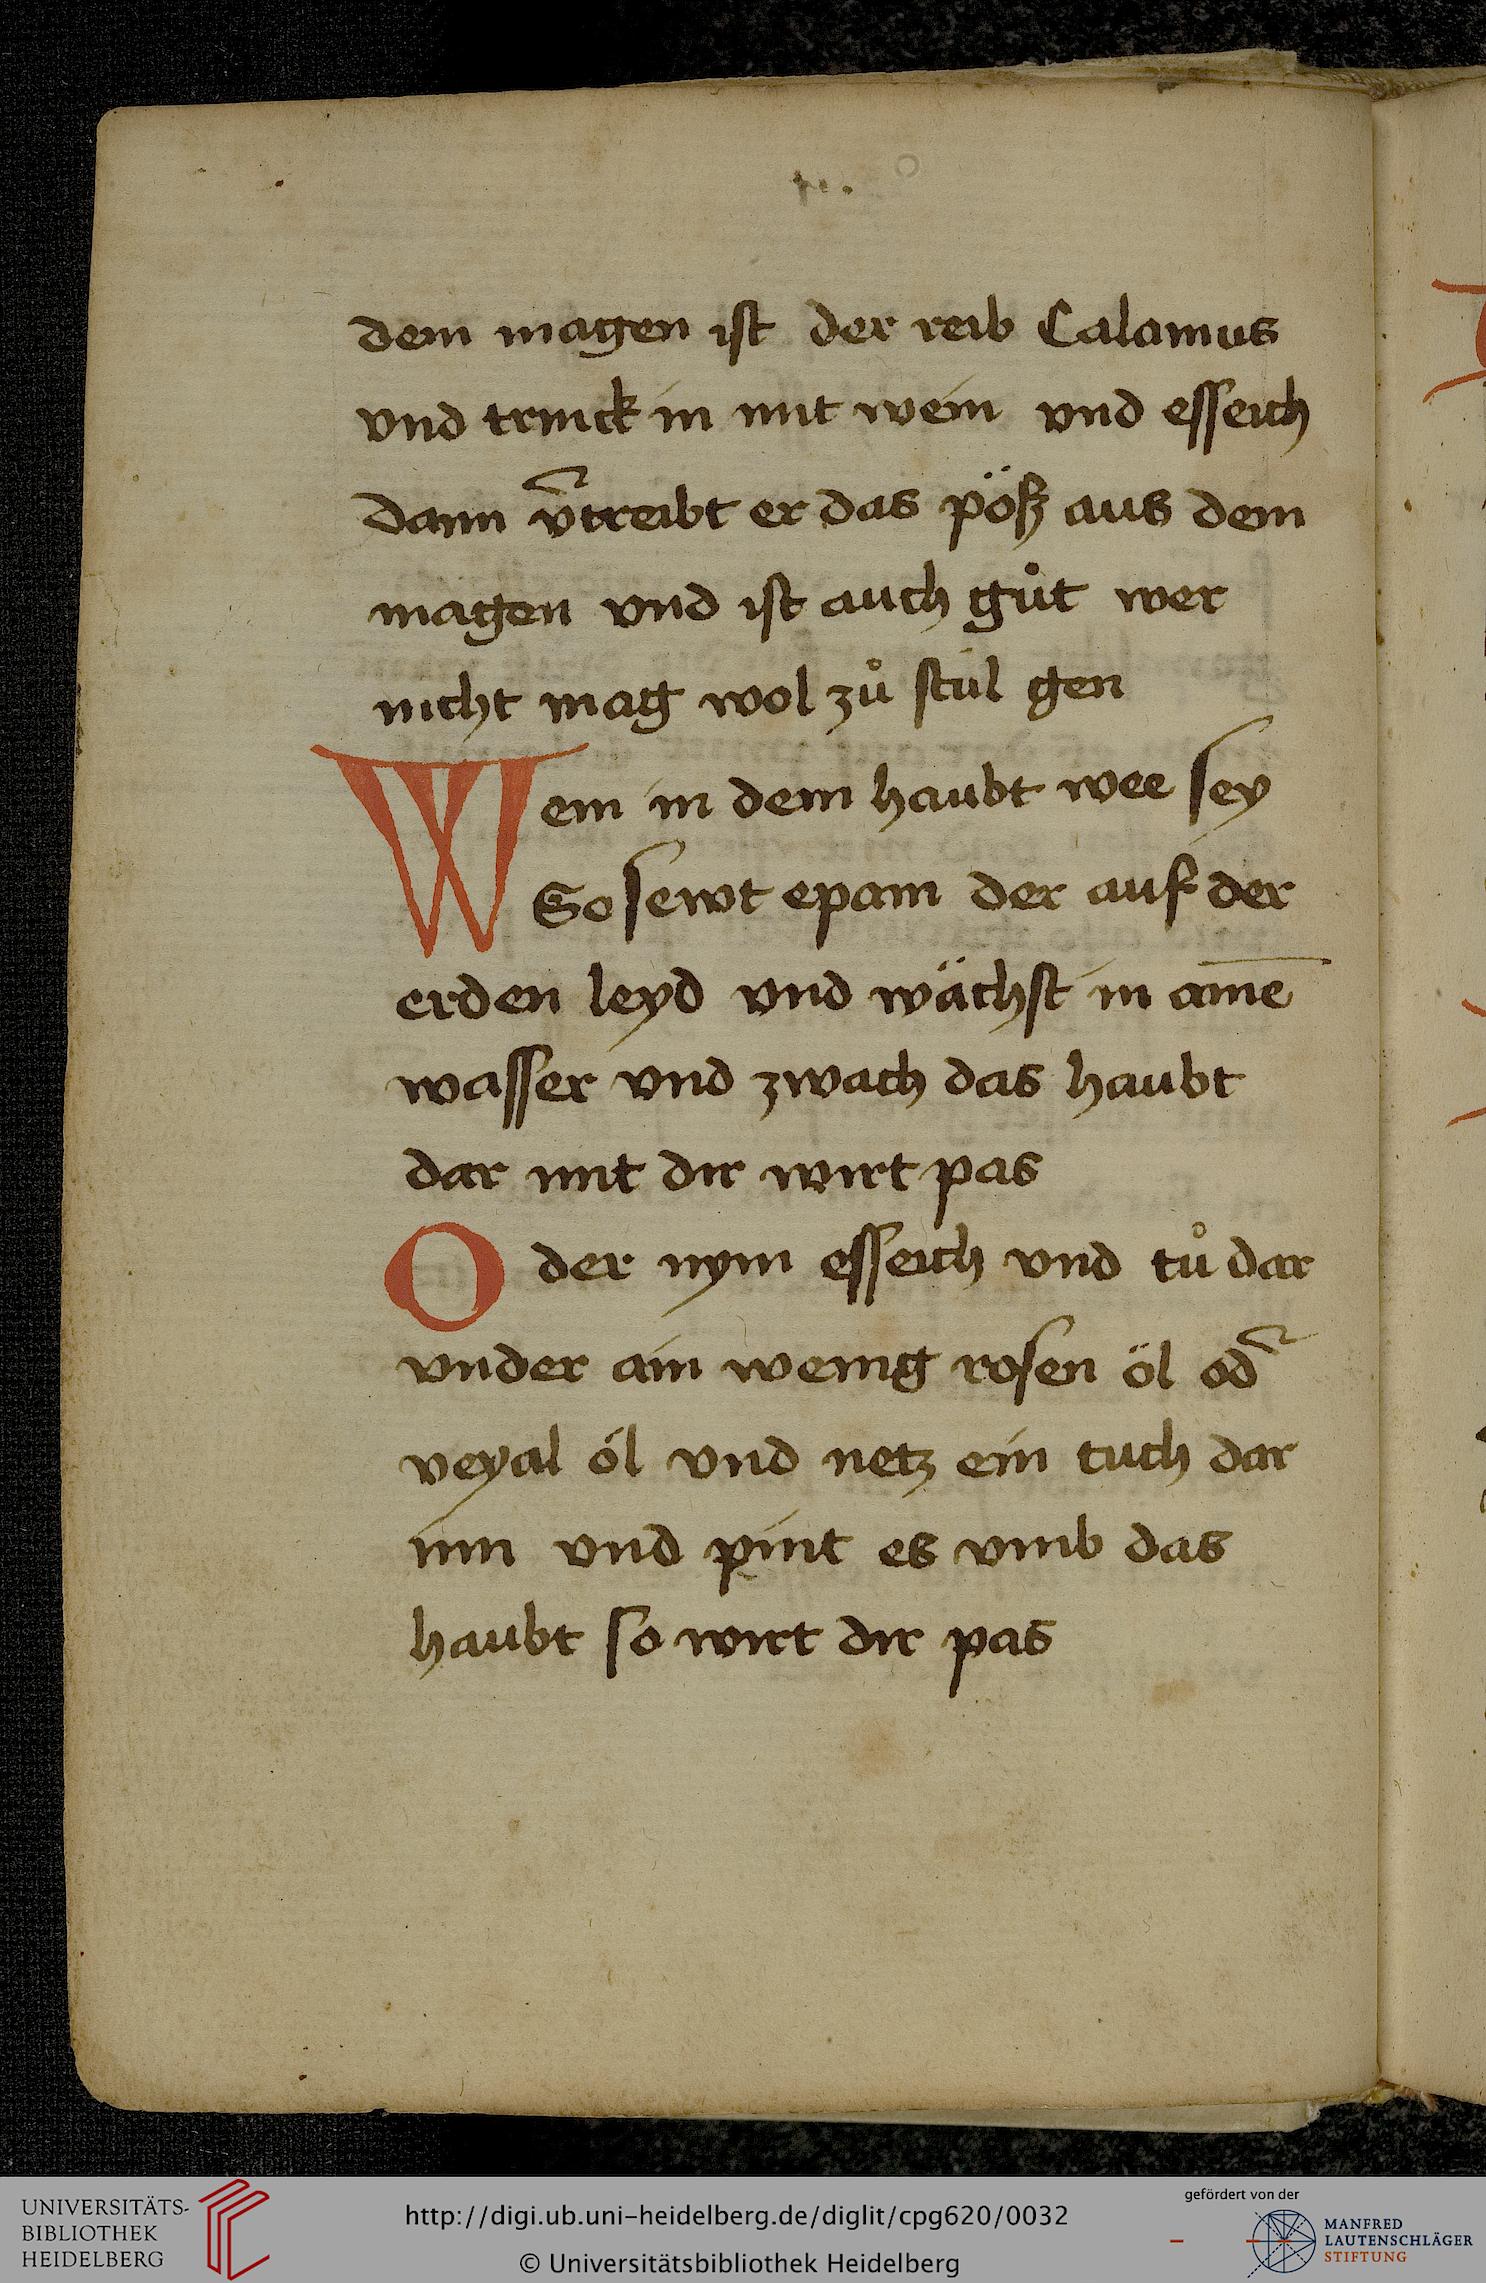 dem magen ist der reib Calamus
vnd trinck in mit wein vnd esseich
dann v̄treibt er das pöß aus dem
magen vnd ist auch gůt wer
nicht mag wol zů stul gen
Wem in dem haubt wee sey
So sewt epam der auf der
erden leyd vnd wächst in aine̅
wasser vnd zwach das haubt
dar mit dir wirt pas
Oder nym esseich vnd tů dar
vnder ain wenig rosen öl od̄
veyal öl vnd netz ein tuch dar
inn vnd pint es vmb das
haubt so wirt dir pas
UNIVERSITÄTS-
BIBLIOTHEK
HEIDELBERG
http://digi.ub.uni-heidelberg.de/diglit/cpg620/0032
© Universitätsbibliothek Heidelberg
gefördert von der
MANFRED
LAUTENSCHLÄGER
STIFTUNG